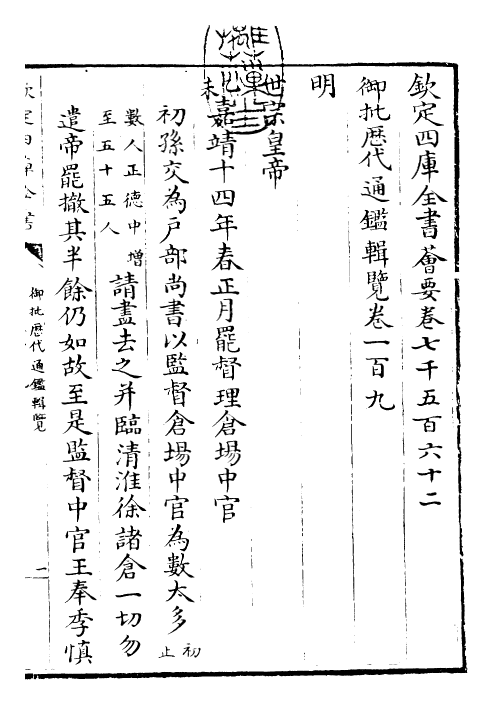 欽定四庫全書薈要卷七千五百六十二
御批歴代通鑑輯覽卷一百九
明
世宗皇帝
未嘉靖十四年春正月罷督理倉場中官
初孫交為戸部尚書以監督倉場中官為數太多初止
數人正德中增至五十五人請盡去之并臨清淮徐諸倉一切勿
遣帝罷撤其半餘仍如故至是監督中官王奉季慎
欽定四庫全書
御批歴代通鑑輯覽
一